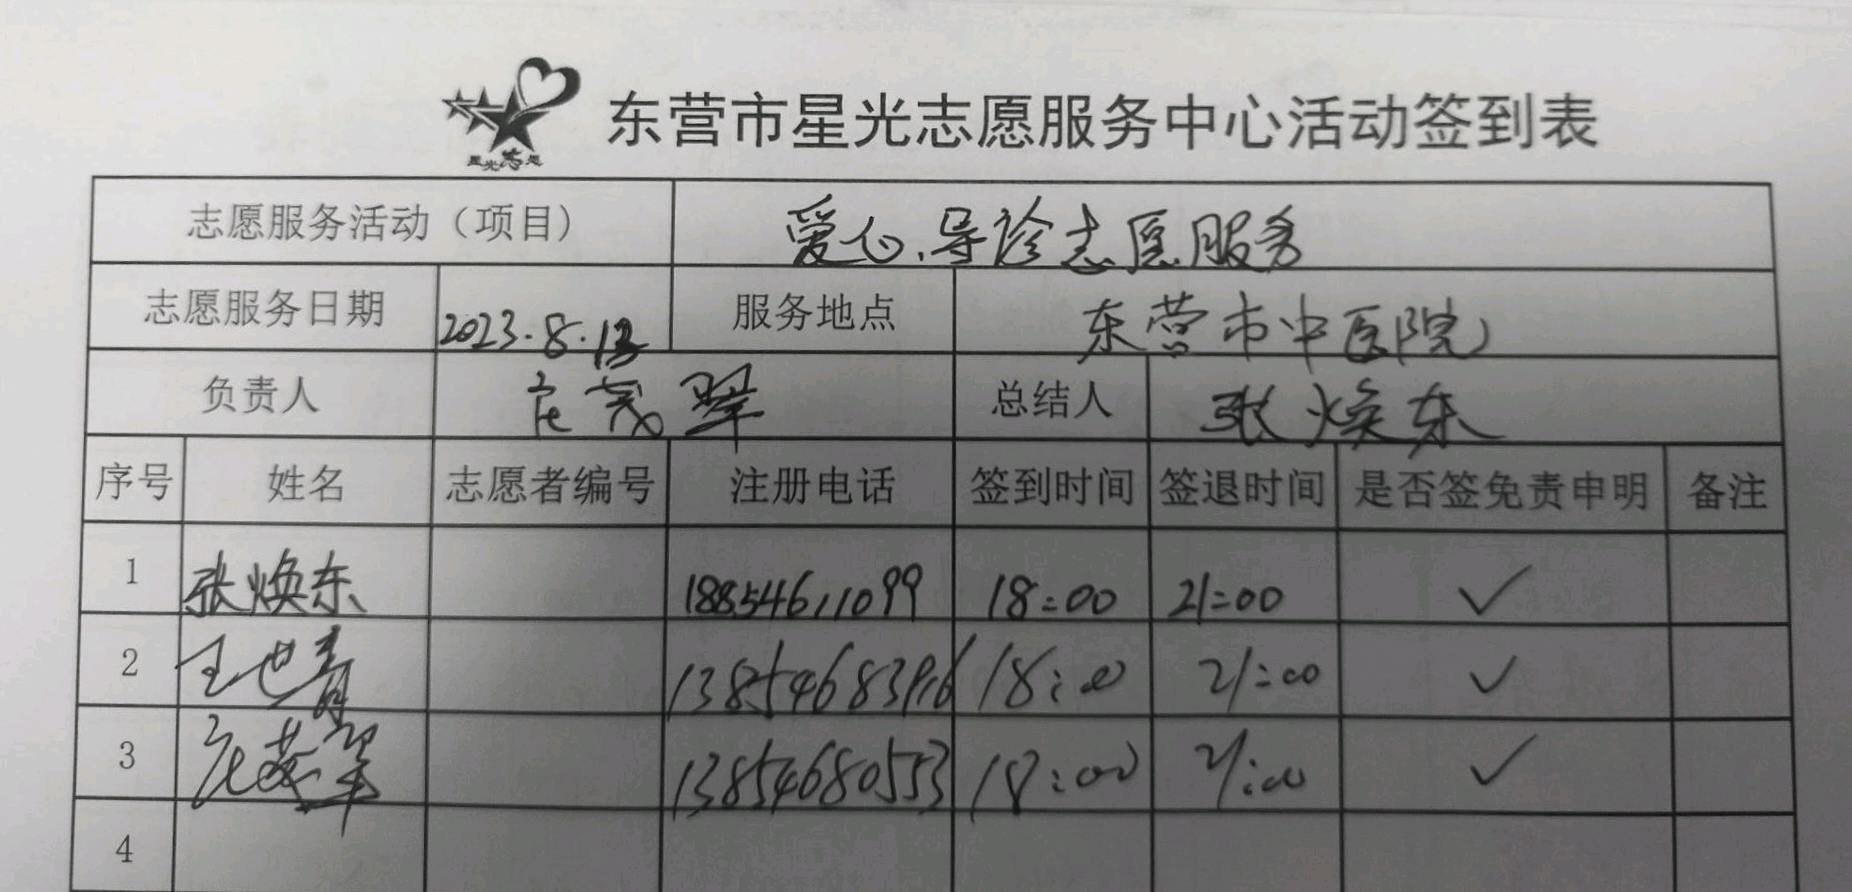 星光志愿
东营市星光志愿服务中心活动签到表
志愿服务活动（项目） 爱心导诊志愿服务
志愿服务日期 2023.8.13 服务地点 东营市中医院
负责人 总结人 张焕东
序号 姓名 志愿者编号 注册电话 签到时间 签退时间 是否签免责申明 备注
1 张焕东 18854611099 18:00 21:00 ✓
2 18:00 21:00 ✓
3 13854680553 18:00 21:00 ✓
4